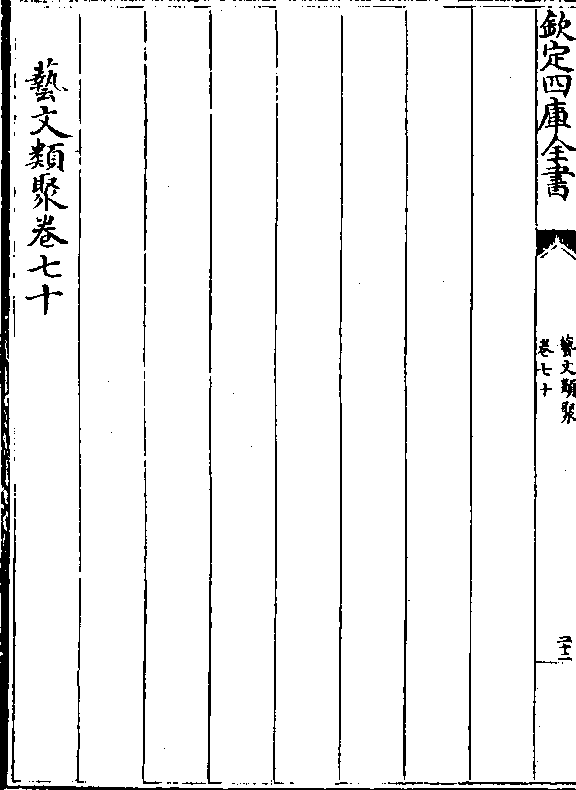 欽定四庫全書
藝文類聚
卷七十
二十二
藝文類聚卷七十